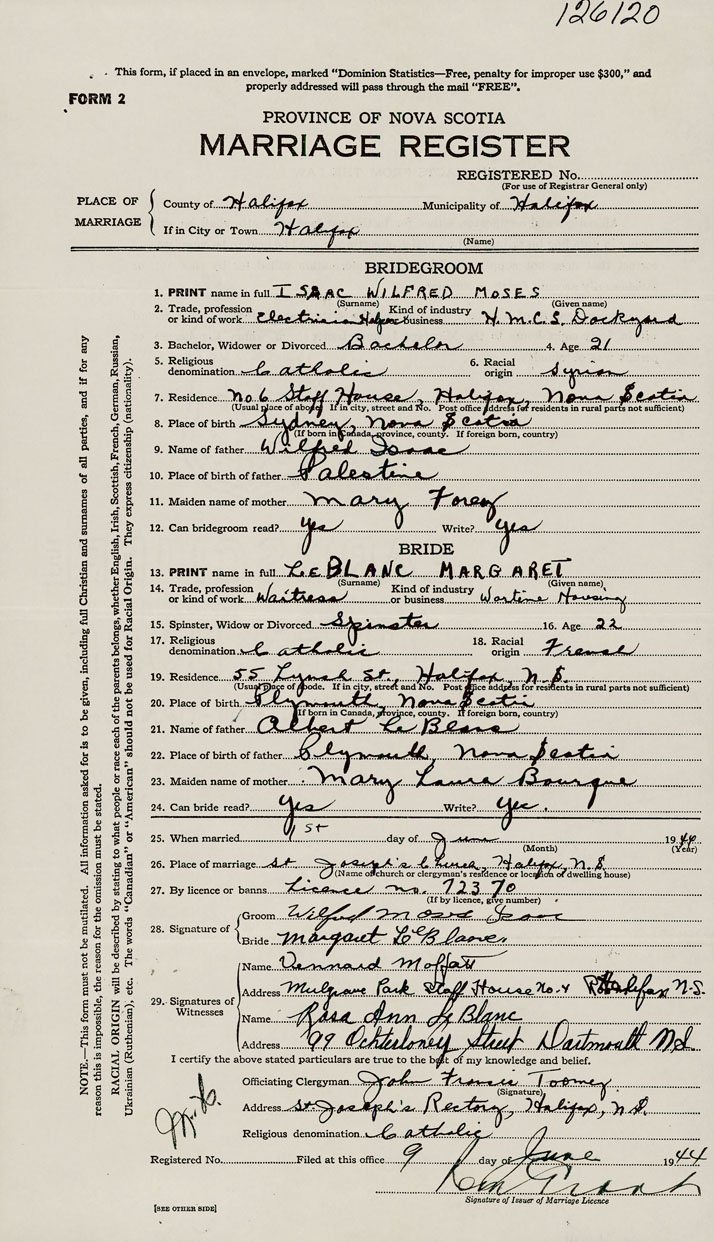 126120
This form, if placed in an envelope, marked "Dominion Statistics—Free, penalty for improper use $300," and
properly addressed will pass through the mail "FREE".
FORM 2
PROVINCE OF NOVA SCOTIA
MARRIAGE REGISTER
REGISTERED No.
(For use of Registrar General only)
PLACE OF MARRIAGE
County of Halifax Municipality of Halifax
If in City or Town Halifax
(Name)
BRIDEGROOM
1. PRINT name in full ISAAC WILFRED MOSES
(Surname) (Given name)
2. Trade, profession or kind of work Electrician Kind of industry or business H.M.C.S. Dockyard
3. Bachelor, Widower or Divorced Bachelor 4. Age 21
5. Religious denomination Catholic 6. Racial origin Syrian
7. Residence No 6 Staff House, Halifax, Nova Scotia
(Usual place of abode. If in city, street and No. Post office address for residents in rural parts not sufficient)
8. Place of birth Sydney, Nova Scotia
(If born in Canada, province, county. If foreign born, country)
9. Name of father Wilfred Isaac
10. Place of birth of father Palestine
11. Maiden name of mother Mary Forey
12. Can bridegroom read? Yes Write? Yes
BRIDE
13. PRINT name in full LEBLANC MARGARET
(Surname) (Given name)
14. Trade, profession or kind of work Waitress Kind of industry or business Wartime Housing
15. Spinster, Widow or Divorced Spinster 16. Age 22
17. Religious denomination Catholic 18. Racial origin French
19. Residence 55 Lynch St., Halifax, N.S.
(Usual place of abode. If in city, street and No. Post office address for residents in rural parts not sufficient)
20. Place of birth Plymouth, Nova Scotia
(If born in Canada, province, county. If foreign born, country)
21. Name of father Albert Le Blanc
22. Place of birth of father Plymouth, Nova Scotia
23. Maiden name of mother Mary Laura Bourque
24. Can bride read? Yes Write? Yes.
25. When married 1st day of June 1944
(Month) (Year)
26. Place of marriage St Joseph's Church, Halifax, N.S
(Name of church or clergyman's residence or location of dwelling house)
27. By licence or banns Licence no. 72370
(If by licence, give number)
28. Signature of
Groom Wilfred Moses Isaac
Bride Margaret LeBlanc
29. Signatures of Witnesses
Name Vennard Moffatt
Address Mulgrave Park Staff House No. 4 Halifax N.S.
Name Rosa Ann LeBlanc
Address 99 Ochterloney Street Dartmouth N.S.
I certify the above stated particulars are true to the best of my knowledge and belief.
Officiating Clergyman John Francis Toomey
(Signature)
Address St Joseph's Rectory, Halifax, N.S.
Religious denomination Catholic
Registered No. Filed at this office 9 day of June 1944
Signature of Issuer of Marriage Licence
[SEE OTHER SIDE]
NOTE.—This form must not be mutilated. All information asked for is to be given, including full Christian and surnames of all parties, and if for any
reason this is impossible, the reason for the omission must be stated.
RACIAL ORIGIN will be described by stating to what people or race each of the parents belongs, whether English, Irish, Scottish, French, German, Russian,
Ukrainian (Ruthenian), etc. The words "Canadian" or "American" should not be used for Racial Origin. They express citizenship (nationality).